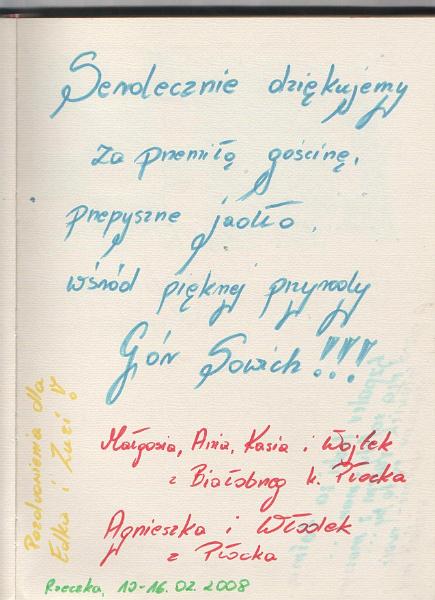 Serdecznie dziękujemy
za przemiłą gościnę,
przepyszne jadło,
wśród pięknej przyrody
Gór Sowich!!!
Małgosia, Ania, Kasia i Wojtek
z Białobrzeg k. Płocka
Agnieszka i Włodek
z Płocka
Rzeczka, 10-16.02.2008
Pozdrowienia dla
Edka i Zuzi!